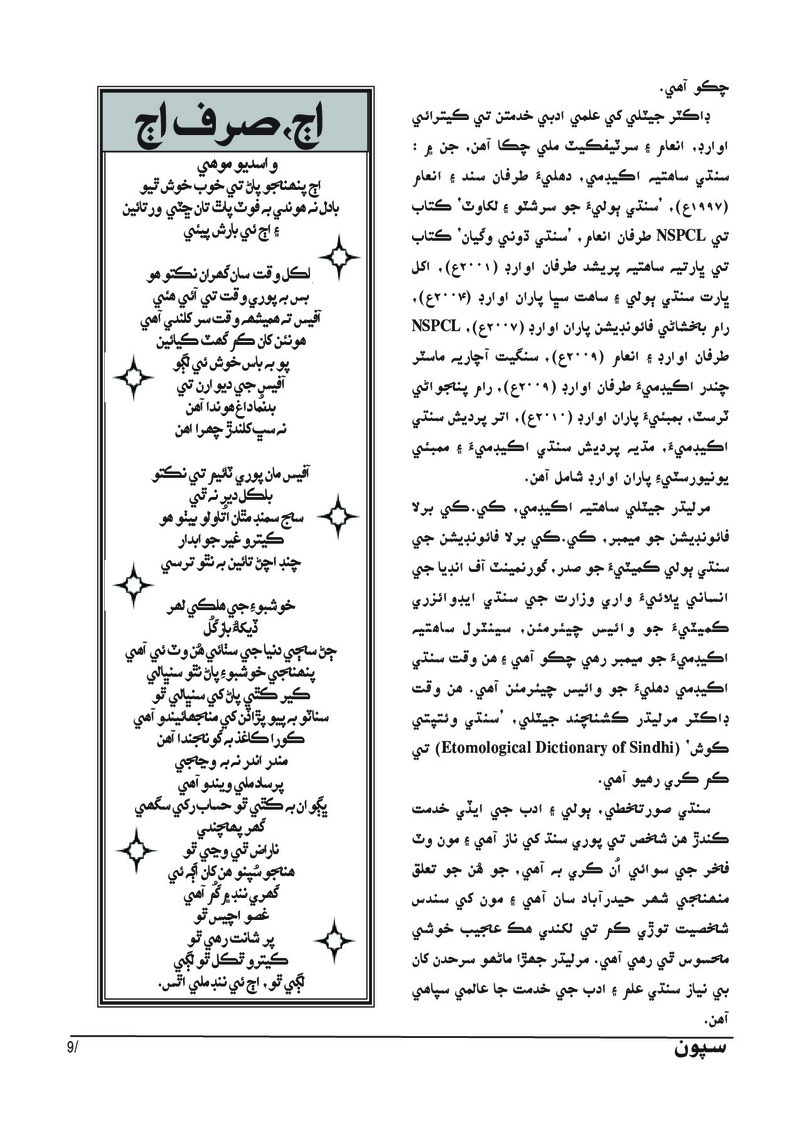 چڪو آهي.
ڊاڪٽر جيٽلي کي علمي ادبي خدمتن تي ڪيترائي
اوارڊ، انعام ۽ سرٽيفڪيٽ ملي چڪا آهن، جن ۾ :
سنڌي ساهتيه اڪيڊمي، دهليءَ طرفان سند ۽ انعام
(۱۹۹۷ع)، 'سنڌي ٻوليءَ جو سرشتو ۽ لکاوٽ' ڪتاب
تي NSPCL طرفان انعام، 'سنڌي ڌوني وگيان' ڪتاب
تي ڀارتيه ساهتيه پريشد طرفان اوارڊ (۲۰۰۱ع)، اکل
ڀارت سنڌي ٻولي ۽ ساهت سڀا پاران اوارڊ (۲۰۰۴ع)،
رام بخشاڻي فائونڊيشن پاران اوارڊ (۲۰۰۷ع)، NSPCL
طرفان اوارڊ ۽ انعام (۲۰۰۹ع)، سنگيت آچاريه ماسٽر
چندر اڪيڊميءَ طرفان اوارڊ (۲۰۰۹ع)، رام پنجواڻي
ٽرسٽ، بمبئيءَ پاران اوارڊ (۲۰۱۰ع)، اتر پرديش سنڌي
اڪيڊميءَ، مڌيه پرديش سنڌي اڪيڊميءَ ۽ ممبئي
يونيورسٽيءَ پاران اوارڊ شامل آهن.
مرليڌر جيٽلي ساهتيه اڪيڊمي، ڪي.ڪي برلا
فائونڊيشن جو ميمبر، ڪي.ڪي برلا فائونڊيشن جي
سنڌي ٻولي ڪميٽيءَ جو صدر، گورنمينٽ آف انڊيا جي
انساني ڀلائيءَ واري وزارت جي سنڌي ايڊوائزري
ڪميٽيءَ جو وائيس چيئرمئن، سينٽرل ساهتيه
اڪيڊميءَ جو ميمبر رهي چڪو آهي ۽ هن وقت سنڌي
اڪيڊمي دهليءَ جو وائيس چيئرمئن آهي. هن وقت
ڊاڪٽر مرليڌر ڪشنچند جيٽلي، 'سنڌي وئتپتي
ڪوش' (Etomological Dictionary of Sindhi) تي
ڪم ڪري رهيو آهي.
سنڌي صورتخطي، ٻولي ۽ ادب جي ايڏي خدمت
ڪندڙ هن شخص تي پوري سنڌ کي ناز آهي ۽ مون وٽ
فاخر جي سوائي اُن ڪري به آهي، جو هُن جو تعلق
منهنجي شهر حيدرآباد سان آهي ۽ مون کي سندس
شخصيت توڙي ڪم تي لکندي هڪ عجيب خوشي
محسوس ٿي رهي آهي. مرليڌر جهڙا ماڻهو سرحدن کان
بي نياز سنڌي علم ۽ ادب جي خدمت جا عالمي سپاهي
آهن.
اڄ، صرف اڄ
واسديو موهي
اڄ پنهنجو پاڻ تي خوب خوش ٿيو
بادل نه هوندي به فوٽ پاٿ تان ڇٽي ورتائين
۽ اڄ ئي بارش پيئي
لڪل وقت سان گهران نڪتو هو
بس به پوري وقت تي آئي هئي
آفيس ته هميشهه وقت سر کلندي آهي
هونئن کان ڪم گهٽ ڪيائين
پو به باس خوش ئي لڳو
آفيس جي ديوارن تي
بدنُما داغ هوندا آهن
نه سڀ کلندڙ چهرا اهن
آفيس مان پوري ٽائيم تي نڪتو
بلڪل دير نه ٿي
سج سمنڊ مٿان اُتاولو بيٺو هو
ڪيترو غير جوابدار
چنڊ اچڻ تائين به نٿو ترسي
خوشبوءِ جي هلڪي لهر
ڏيکهُ بازگُل
ڄڻ سڄي دنيا جي سٺائي هُن وٽ ئي آهي
پنهنجي خوشبوءِ پاڻ نٿو سنڀالي
ڪير ڪٿي پاڻ کي سنڀالي ٿو
سناٽو به پيو پڙاڏن کي منجهائيندو آهي
ڪورا ڪاغذ به گونجندا آهن
مندر اندر نه به وڃجي
پرساد ملي ويندو آهي
ڀڳوان به ڪٿي ٿو حساب رکي سگهي
گهر پهچندي
ناراض ٿي وڃي ٿو
هنجو سُپنو هن کان اڳه ئي
گهري ننڊ ۾ گُم آهي
غصو اچيس ٿو
پر شانت رهي ٿو
ڪيترو ٿڪل ٿو لڳي
لڳي ٿو، اڄ ئي ننڊ ملي اٿس.
سپون
9/